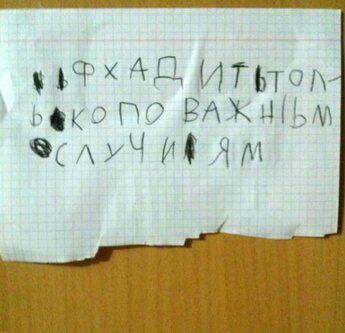 ФХАДИТЬТОЛ-
ЬКОПОВАЖНЬІМ
СЛУЧИЯМ